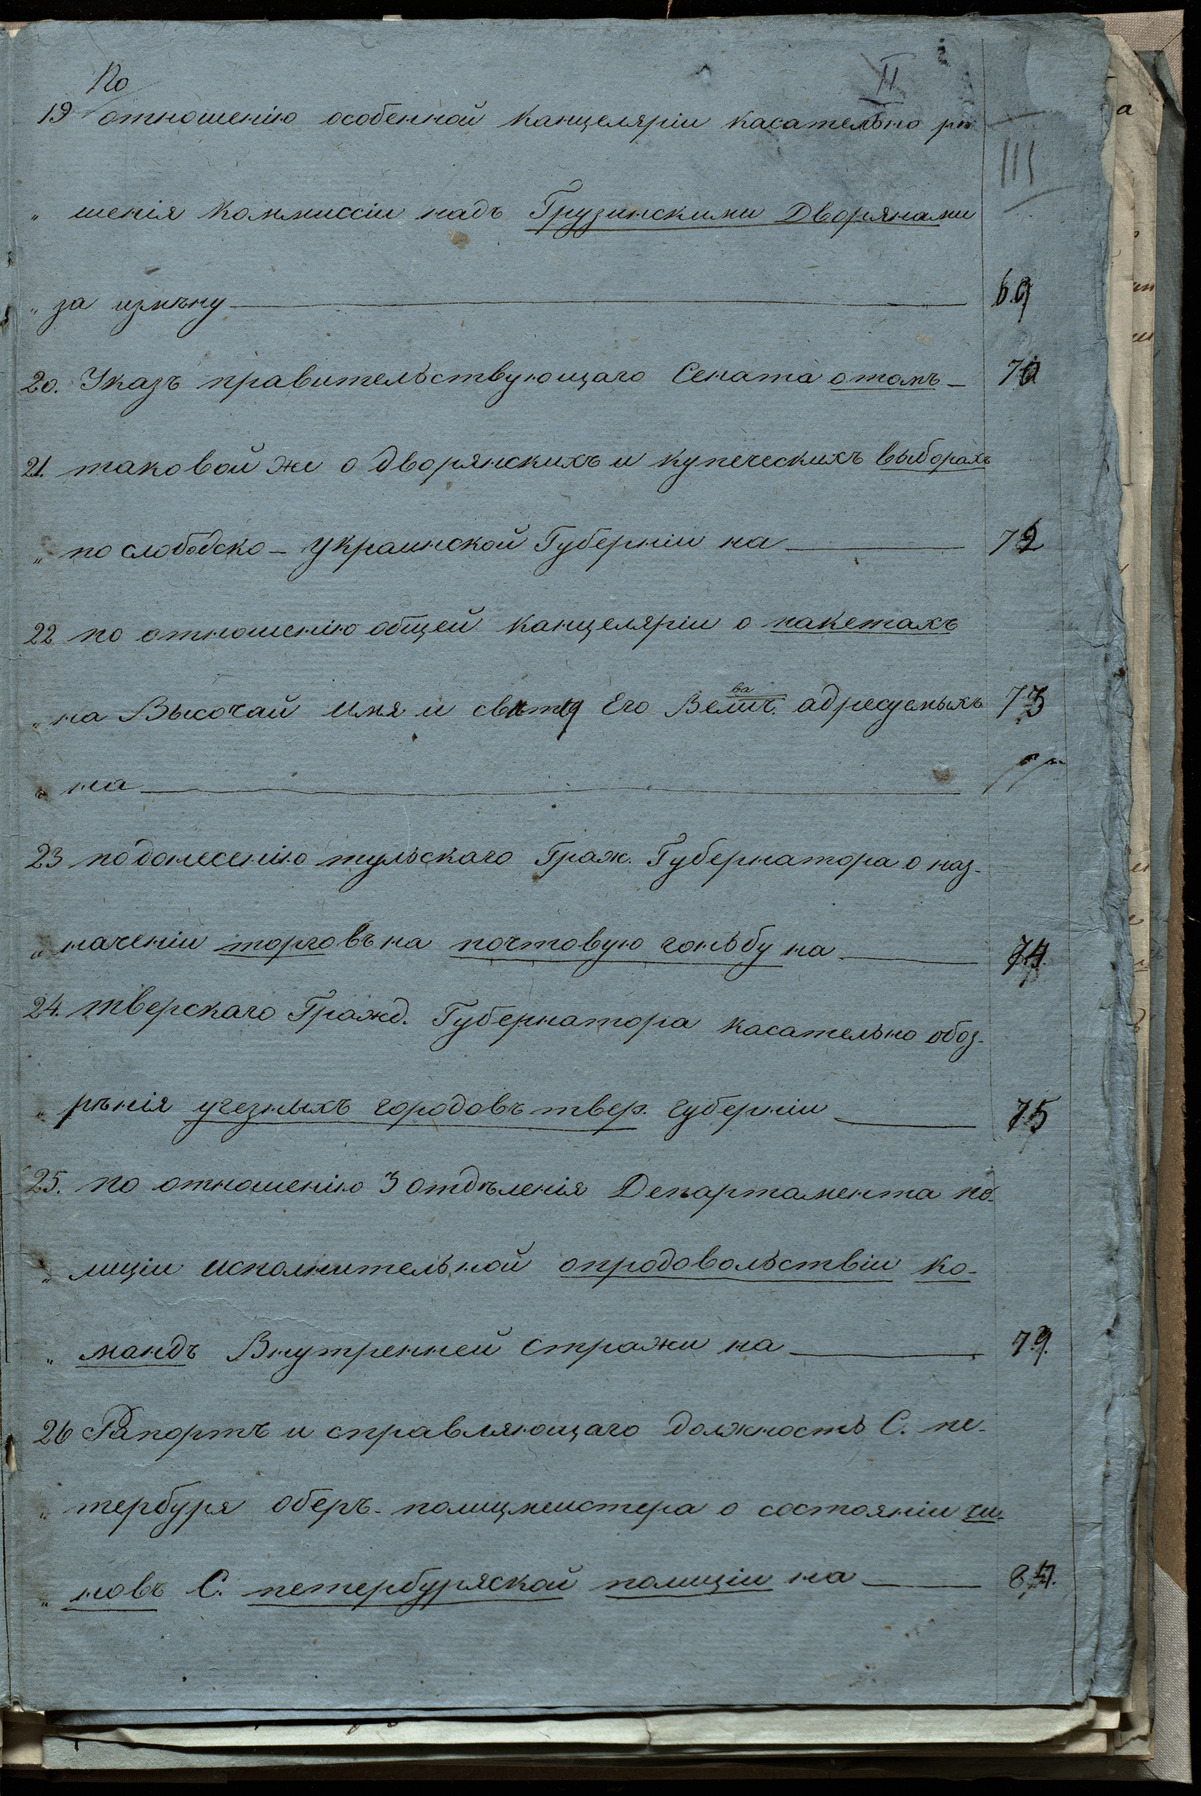 По
II
19 отношенію особенной канцеляріи касательно рѣ
III
„ шенія коммиссіи надъ Грузинскими Дворянами
„ за измѣну 69
20. Указъ правительствующаго Сената отомъ 70
21. таковой же о дворянскихъ и купеческихъ выборахъ
„ по слободско-украинской Губерніи на 72
22 по отношенію общей канцеляріи о пакетахъ
„ на Высочай имя и свѣту Его Велич.ва адресуемыхъ 73
„ на
23 подонесенію тульскаго Граж. Губернатора о наз-
„ наченіи торговъ на почтовую гоньбу на 74
24. тверскаго Гражд. Губернатора касательно обоз-
„ рѣнія уезныхъ городовъ твер. губерніи 75
25. по отношенію 3 отдѣленія Департамента по-
„ лиціи исполнительной опродовольствіи ко-
„ мандъ Внутренней стражи на 79.
26 Рапортъ и справляющаго должность С. пе-
„ тербургя оберъ-полицмейстера о состояніи чи-
„ новъ С. петербургской полиціи на